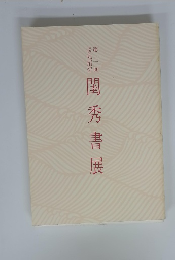 閨秀書展